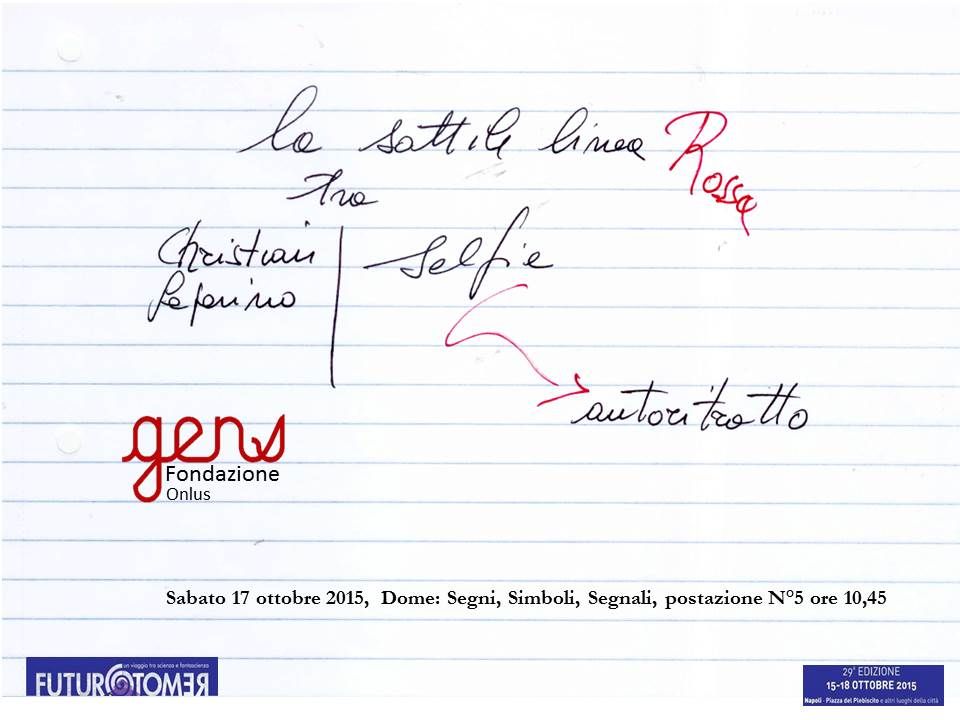 la sottile linea Rossa
tra
Christian
selfie
autoritratto
gens
Fondazione
Onlus
Sabato 17 ottobre 2015, Dome: Segni, Simboli, Segnali, postazione N°5 ore 10,45
un viaggio tra scienza e fantascienza
FUTUROREMOTO
29° EDIZIONE
15-18 OTTOBRE 2015
Napoli - Piazza del Plebiscito e altri luoghi della città